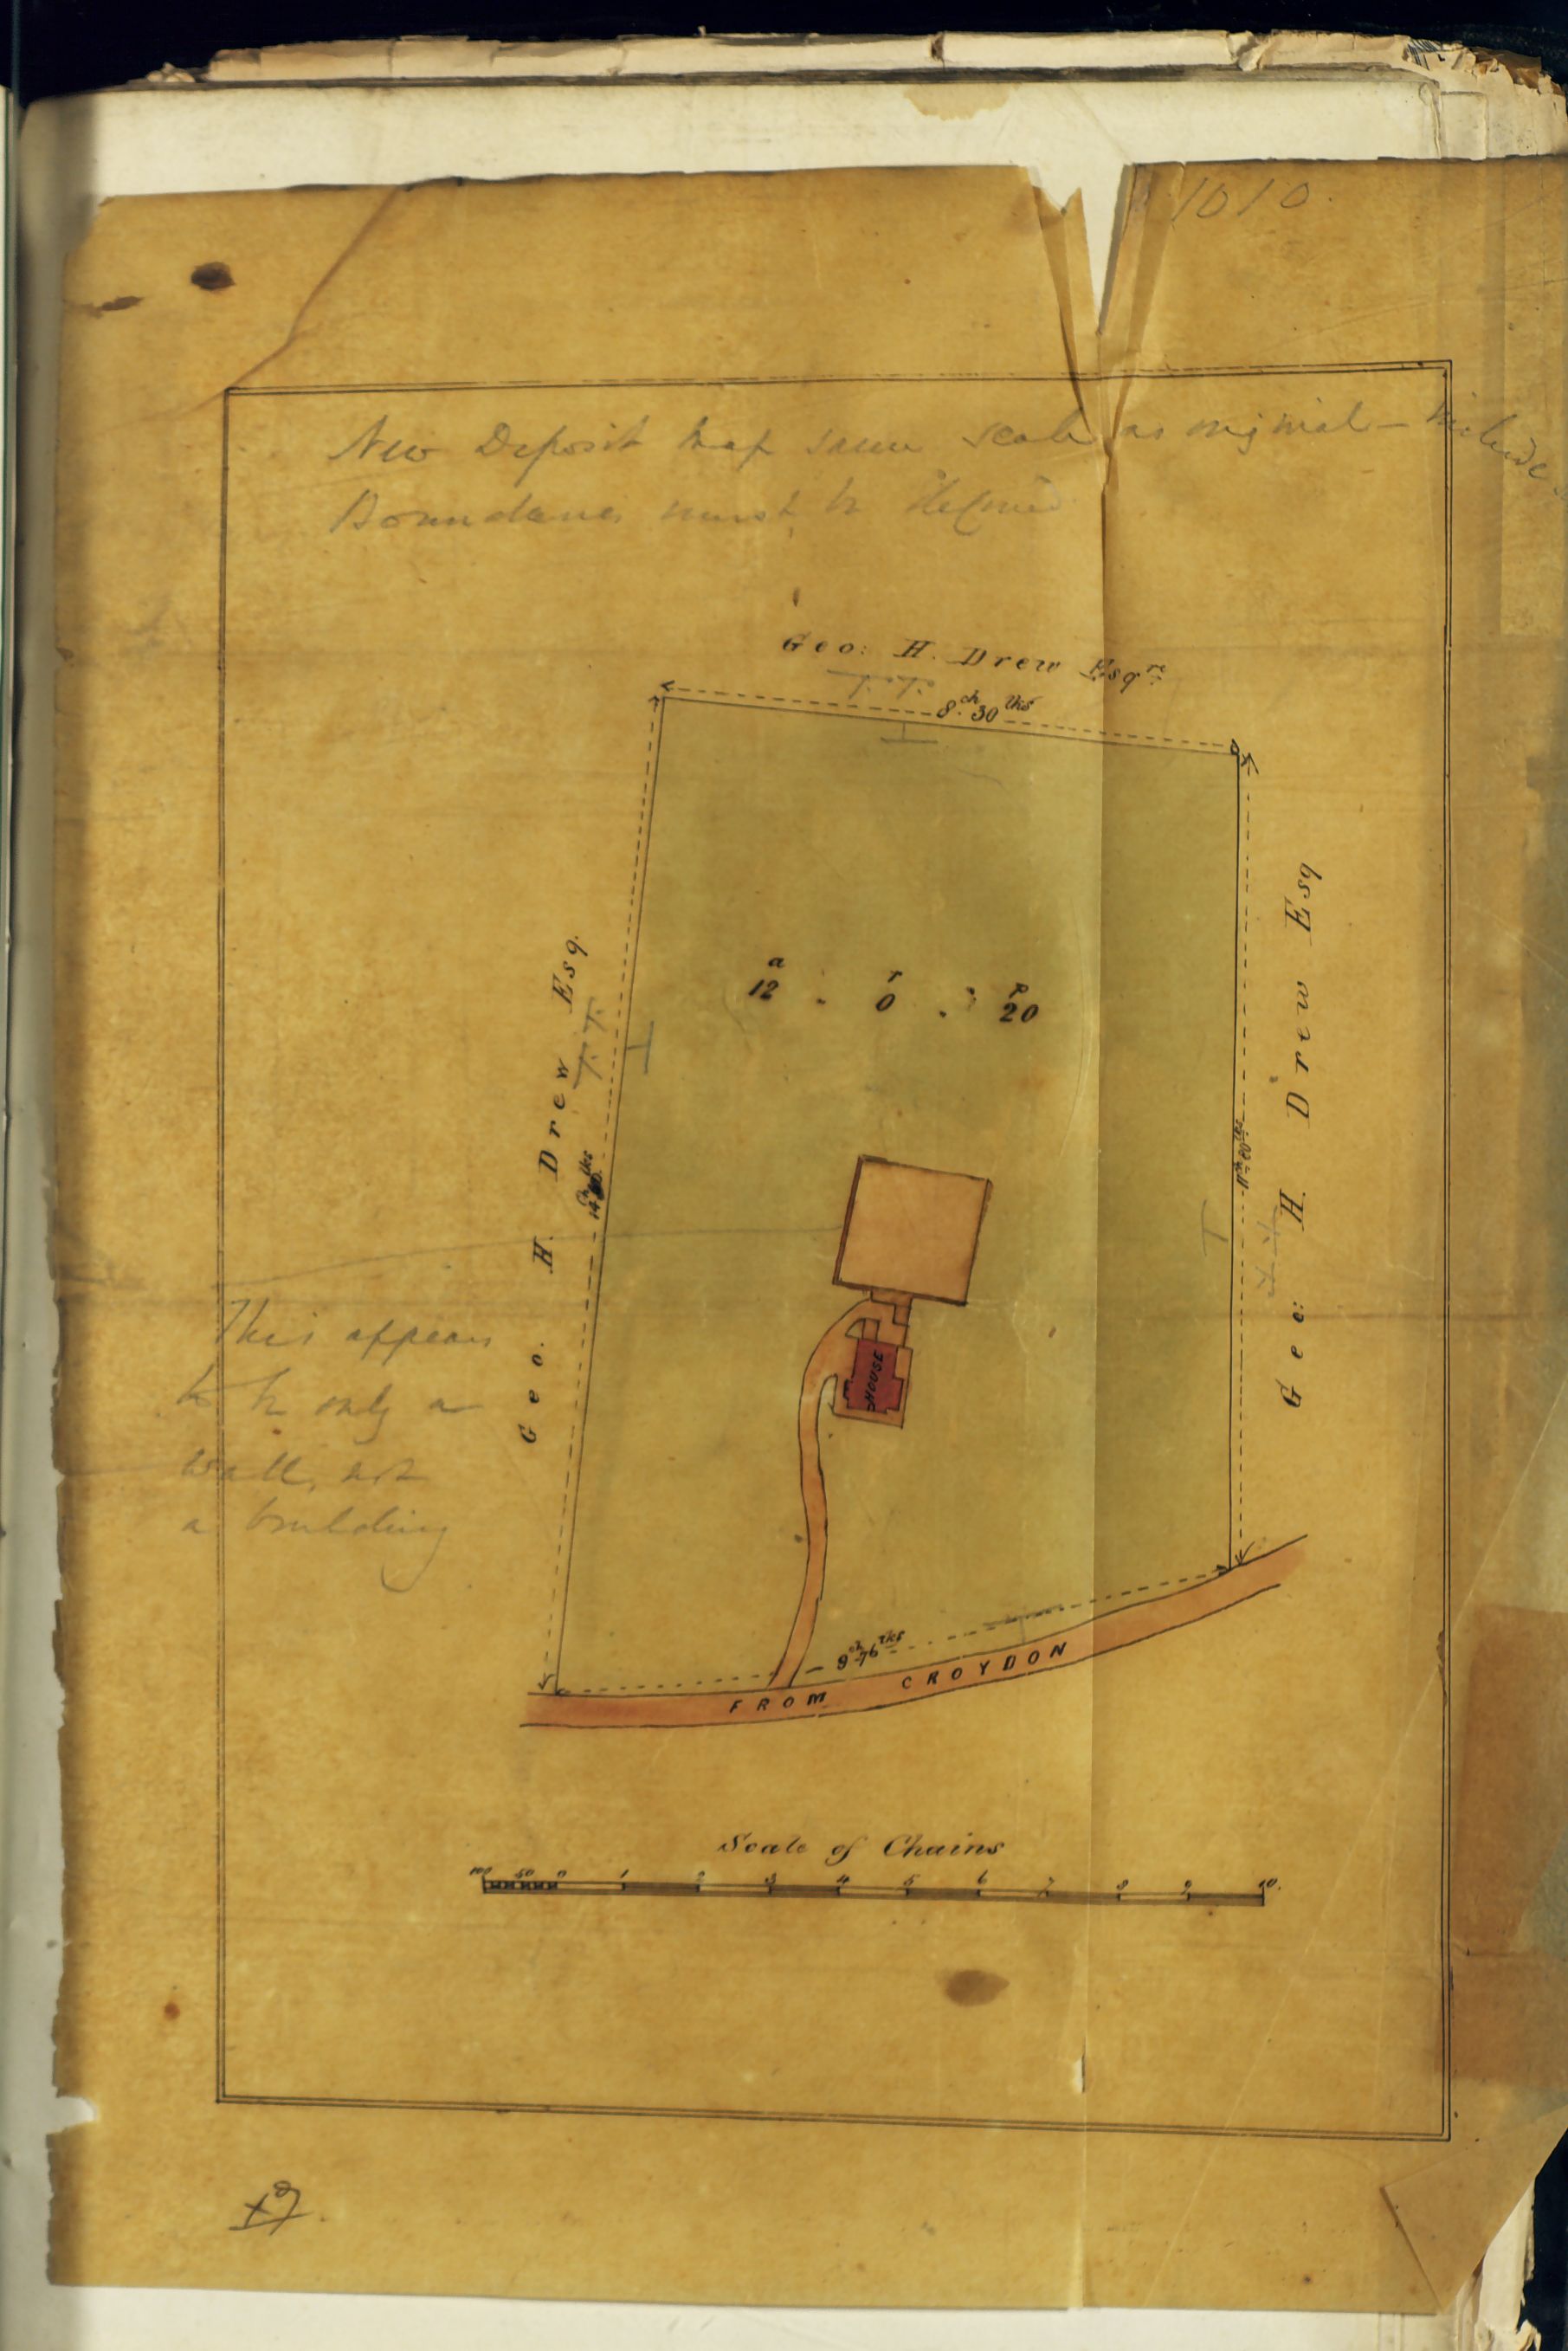 1010.
New Deposit map same scale as original - include
Boundaries must be defined
Geo: H. Drew Esqre
T. T.
8ch 30lks
T
Geo. H. Drew Esq.
T. T.
14ch lks
T
a r p
12 . 0 . 20
Geo: H Drew Esq
11ch 80lks
T
HOUSE
This appears
to be only a
wall, not
a building
9ch 76lks
FROM CROYDON
Scale of Chains
100 50 0 1 2 3 4 5 6 7 8 9 10.